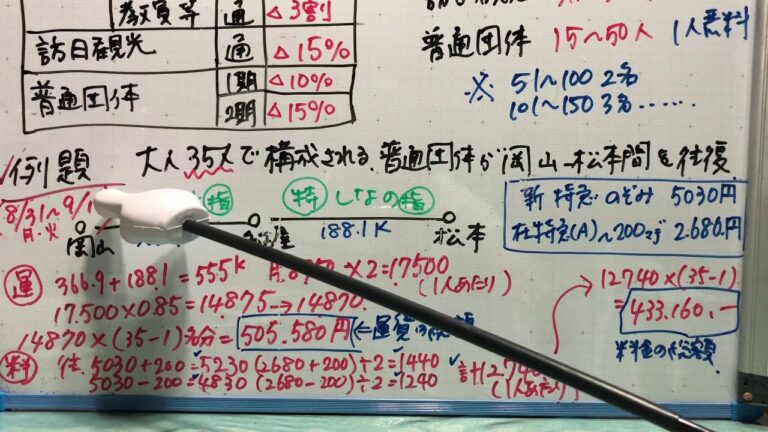 教員等 通 △3割
訪日観光 通 △15%
普通団体 1期 △10%
2期 △15%
普通団体 15~50人 1人無料
※ 51~100 2名
101~150 3名……
例題 大人35人で構成される、普通団体が岡山–松本間を往復
8/31~9/1
月・火
指 特 しなの 指
岡山 188.1K 松本
新特急 のぞみ 5030円
在特急(A)~200まで 2.680円
運 366.9+188.1=555K ×2=17500
(1人あたり)
17.500×0.85=14875→14870
14870×(35-1)名分=505.580円 ←運賃の総額
料 往 5030+200=5230 (2680+200)÷2=1440
5030-200=4830 (2680-200)÷2=1240
計12.740
(1人あたり)
12740×(35-1)
=433.160.-
料金の総額